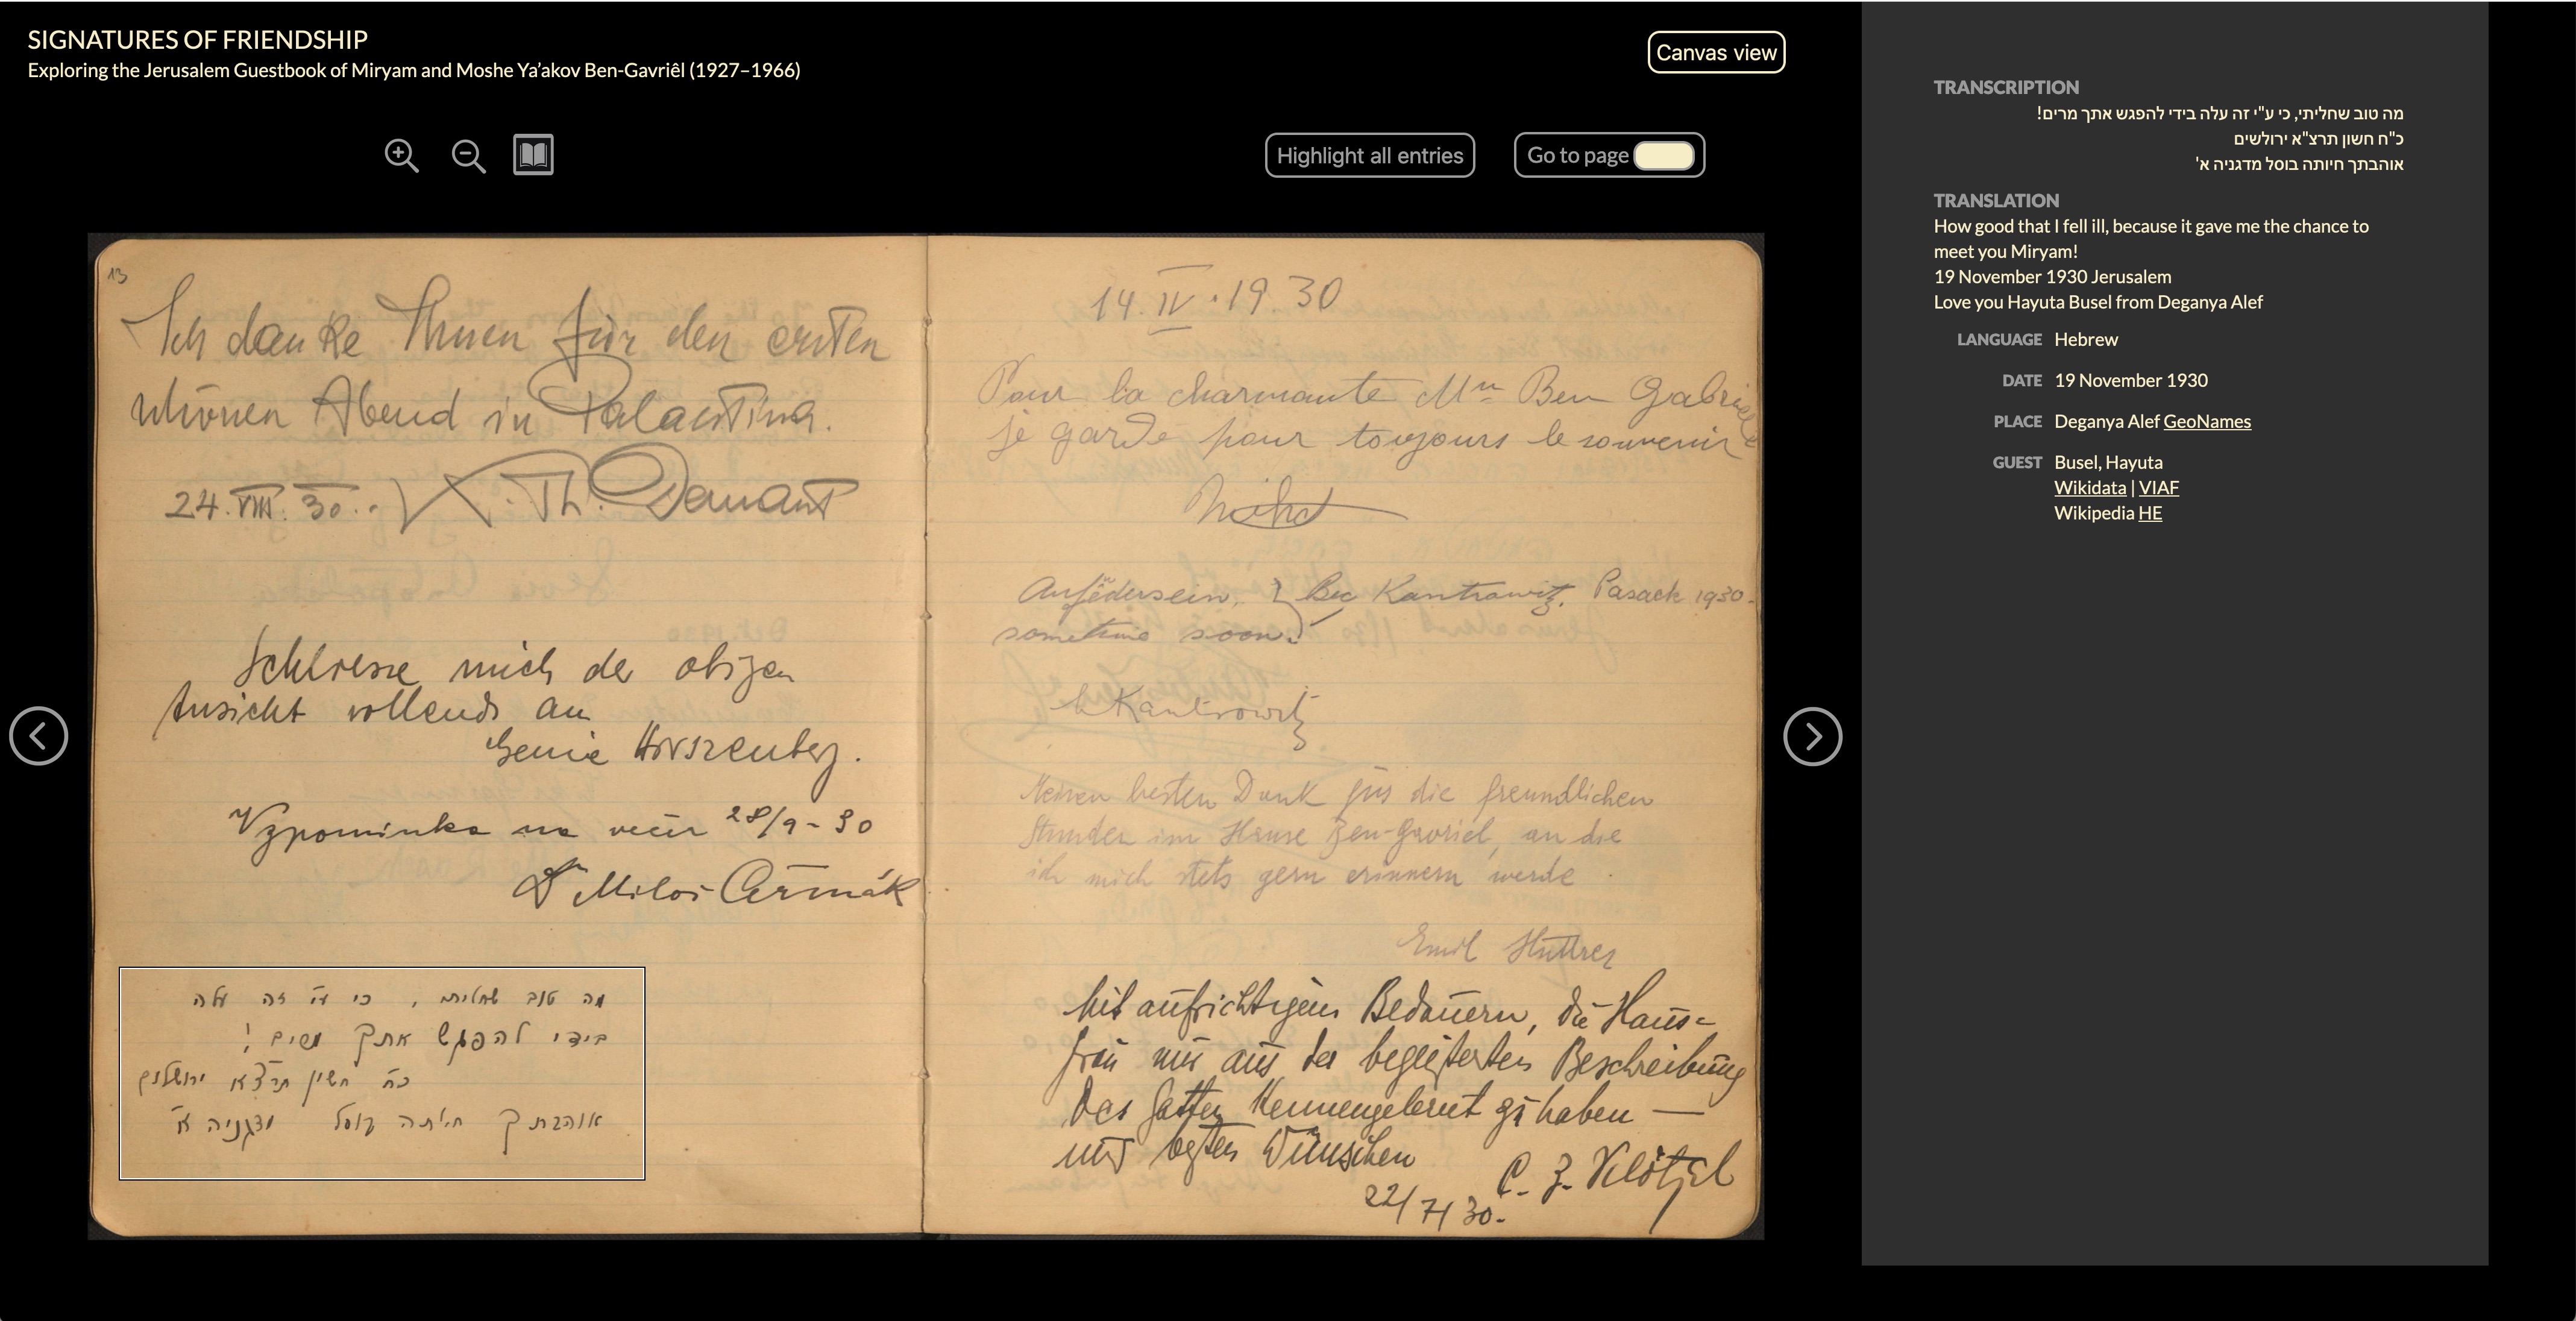 SIGNATURES OF FRIENDSHIP
Exploring the Jerusalem Guestbook of Miryam and Moshe Ya’akov Ben-Gavriêl (1927–1966)
Canvas view
Highlight all entries
Go to page
13
Ich danke Ihnen für den ersten
schönen Abend in Palästina.
24. VIII. 30. K. Th. Demant
Schliesse mich der obigen
Ansicht vollends an
Genie Hirszenberg.
Vzpomínka na večer 28/9-30
Dr Miloš Čermák
מה טוב שחליתי, כי ע"י זה עלה
בידי להפגש אתך מרים!
כ"ח חשון תרצ"א ירושלים
אוהבתך חיותה בוסל מדגניה א'
14. IV. 19.30
Pour la charmante Mme Ben Gabriel
je garde pour toujours le souvenir
Aufëdersein. } Bec Kantrowitz. Pasach 1930.
sometime soon.
Kantrowitz
Meinen besten Dank für die freundlichen
Stunden im Hause Ben-Gavriel, an die
ich mich stets gern erinnern werde.
Emil Huttrer
Mit aufrichtigem Bedauern, die Haus-
frau nur aus der begeisterten Beschreibung
des Gatten kennengelernt zu haben —
und besten Wünschen
C. Z. Klötzel
22/7/30.
TRANSCRIPTION
מה טוב שחליתי, כי ע"י זה עלה בידי להפגש אתך מרים!
כ"ח חשון תרצ"א ירולשים
אוהבתך חיותה בוסל מדגניה א'
TRANSLATION
How good that I fell ill, because it gave me the chance to
meet you Miryam!
19 November 1930 Jerusalem
Love you Hayuta Busel from Deganya Alef
LANGUAGE Hebrew
DATE 19 November 1930
PLACE Deganya Alef GeoNames
GUEST Busel, Hayuta
Wikidata | VIAF
Wikipedia HE